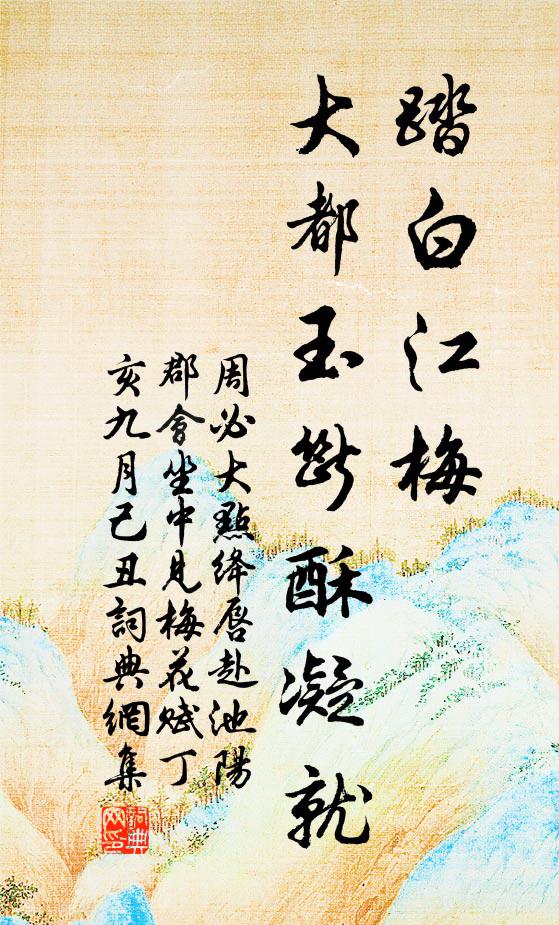 踏白江梅
大都玉斲酥凝就
周必大點絳唇赴池陽
郡會坐中見梅花賦丁
亥九月己丑詞典網集
詞典
网印